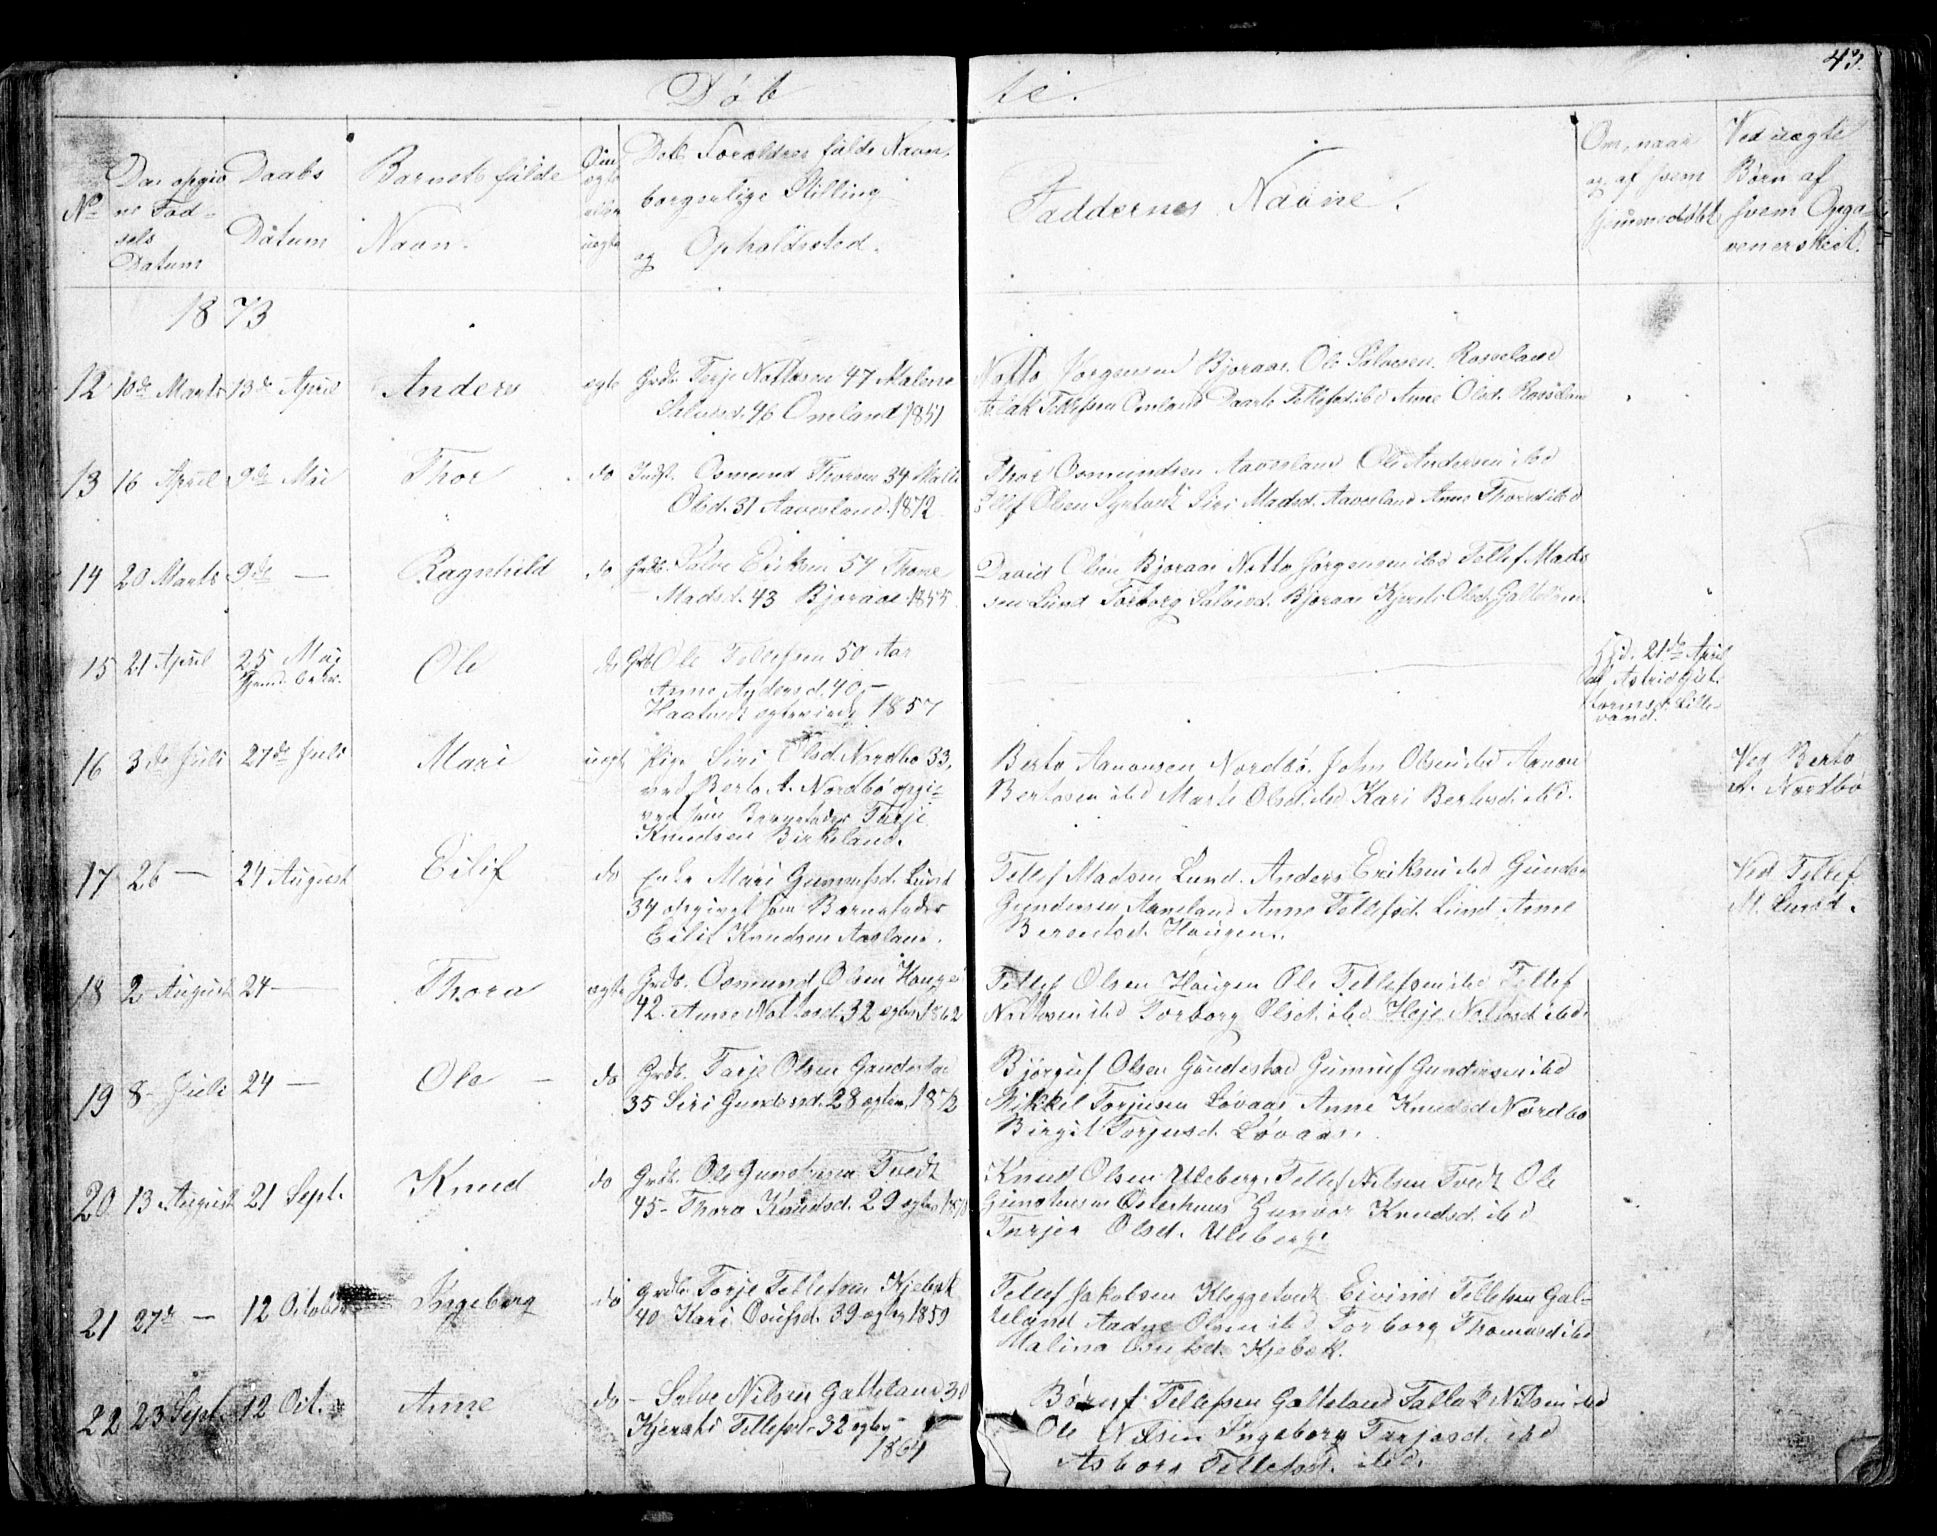 43.
Døbte.
No
Den opgivne Fødsels Datum
Daabs Datum
Barnets fulde Navn.
Om ægte eller uægte
Dets Forældres fulde Navn, borgerlige Stilling og Opholdssted.
Faddernes Navne.
Om, naar og af hvem hjemmedøbt
Ved uægte Børn af hvem Opgaven er skeet.
1873
12 10de Marts 13de April Anders ægte Grdb. Terje Nottosen 47 Malene
Salvesd. 46 Omland 1851
Notto Jørgensen Bjoraae. Ole Salvesen. Rosseland
Aslak Tellefsen Omland Tellefsd. ibd Anne Olsd. Rosseland
13 16 April 9de Mai Thor do Indst. Osmund Thorsen 34
Olsd. 31 Aavesland. 1872
Thor Osmundsen Aavesland Ole Andersen ibd
Tellef Olsen Siri Madsd. Aavesland Anne Thorsd ibd
14 20 Marts 9de — Ragnhild do Grdb. Salve Eriksen 54 Thone
Madsd. 43 Bjoraae. 1855
David Olsen Bjoraae Notto Jørgensen ibd Tellef Mad-
sen Lund Torborg Salvesd. Bjoraae Kjersti Olsd.
15 21 April 25 Mai Ole do Grdb Ole Tellefsen 50 Aar
Anne 40 —
Haatvedt ægteviede 1857
Hjd. 21de April
af Astrid
Lille-
vand.
16 3de Juli 27de Juli Mari uægte Pige Siri Olsd. Nordbø 33,
ved Berto A. Nordbø opgi-
ved som Barnefader Tarje
Knudsen Birkeland.
Berto Aanonsen Nordbø. John Olsen ibd Aanon
Bertosen ibd Marte Olsd. ibd Kari Bertosd. ibd.
Ved Berto
A. Nordbø
17 26 — 24 August Eilif do Enke Mari Gunnufsd. Lund
34 opgivet som Barnefader
Eilif Knudsen Aasland.
Tellef Madsen Lund. Anders Eriksen ibd Gunder
Gundersen Aaneland Anne Tellefsd. Lund Anne
Berentsd. Haugen.
Ved Tellef
M. Lund.
18 2 August 24 — Thora ægte Grdb. Osmund Olsen Haugen
42. Anne Nottosd. 32 ægtev. 1862
Tellef Olsen Haugen Ole Tellefsen ibd Tellef
Nottosen ibd Torborg Olsd. ibd Nottosd ibd.
19 8 Juli 24 — Ole — do Grdb. Tarje Olsen Gaudestad
35 Siri Gundersd. 28 ægtev. 1872
Bjørguf Olsen Gaudestad Gunnuf Gundersen ibd
Mikkel Torjusen Løvaas Anne Knudsd Nordbø
Birgit Torjusd. Løvaas.
20 13 August 21 Sept. Knud do Grdb. Ole Gunstensen Tvedt
45 — Thora Knudsd. 29 ægtev
Knud Olsen Uleberg. Tellef Nilsen Tvedt Ole
Gunstensen Østerhuus Gunvor Knudsd. ibd
Olsd. Uleberg.
21 27de — 12 October Ingeborg do Grdb. Torje Tellefsen Kjebæk
40 Kari Osufsd. 39 ægtev 1859
Tellef Jakobsen Kleggetvedt Eivind Tellefsen Gat-
teland Aadne Olsen ibd Torborg Thomasd ibd
Malina Osufsd. Kjebæk.
22 23 Sept. 12 Oct. Anne do — Salve Nilsen Gatteland 38
Kjersti Tellefsd — 32 ægtev
1864
Tellefsen Gatteland Nilsen ibd
Ole Nilsen Ingeborg Tarjesd. ibd
Asborg Tellefsd. ibd.